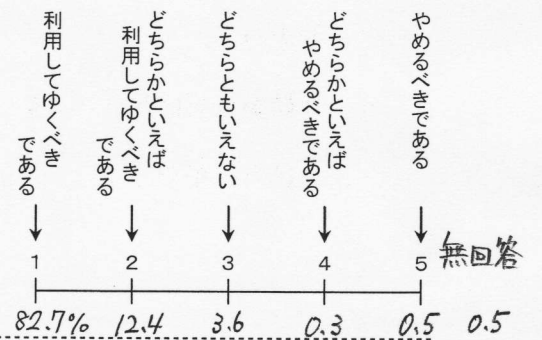 利用してゆくべき
である
どちらかといえば
利用してゆくべき
である
どちらともいえない
どちらかといえば
やめるべきである
やめるべきである
1 2 3 4 5 無回答
82.7% 12.4 3.6 0.3 0.5 0.5